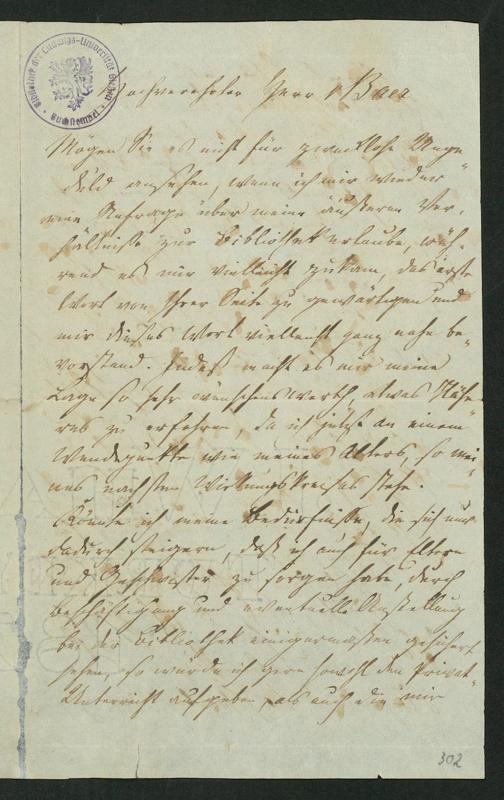 Bibliothek der Ludwigs-Universität Gießen
Buchstempel
Hochverehrter Herr v Baer
Mögen Sie es nicht für zwecklose Unge-
duld ansehen, wenn ich mir wieder
eine Anfrage über meine äußeren Ver-
hältnisse zur Bibliothek erlaube, wäh-
rend es mir vielleicht zukam, das erste
Wort von Ihrer Seite zu gewärtigen und
mir dieses Wort vielleicht ganz nahe be-
vorstand. Indeß macht es mir meine
Lage so sehr wünschenswerth, etwas Nähe-
res zu erfahren, da ich jetzt an einem
Wendepunkte wie meines Alters, so mei-
nes nächsten Wirkungskreises stehe.
Könnte ich meine Bedürfnisse, die sich nur
dadurch steigern, daß ich auch für Eltern
und Geschwister zu sorgen habe, durch
Beschäftigung und eventuelle Anstellung
bei der Bibliothek einigermassen gesichert
sehen, so würde ich gern sowohl den Privat-
Unterricht aufgeben, als auch die mir
302